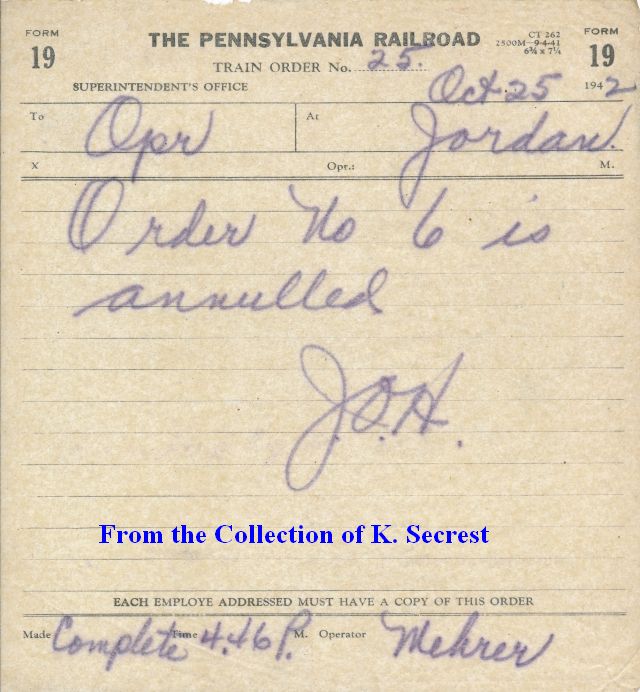 FORM 19 THE PENNSYLVANIA RAILROAD CT 262 FORM 19
2500M—9-4-41
6¾ x 7¼
TRAIN ORDER No. 25.
SUPERINTENDENT'S OFFICE Oct 25 1942
To Opr At Jordan.
X Opr.: M.
Order No 6 is
annulled
J.O.H.
From the Collection of K. Secrest
EACH EMPLOYE ADDRESSED MUST HAVE A COPY OF THIS ORDER
Made Complete Time 4.46 P. M. Operator Mehrer